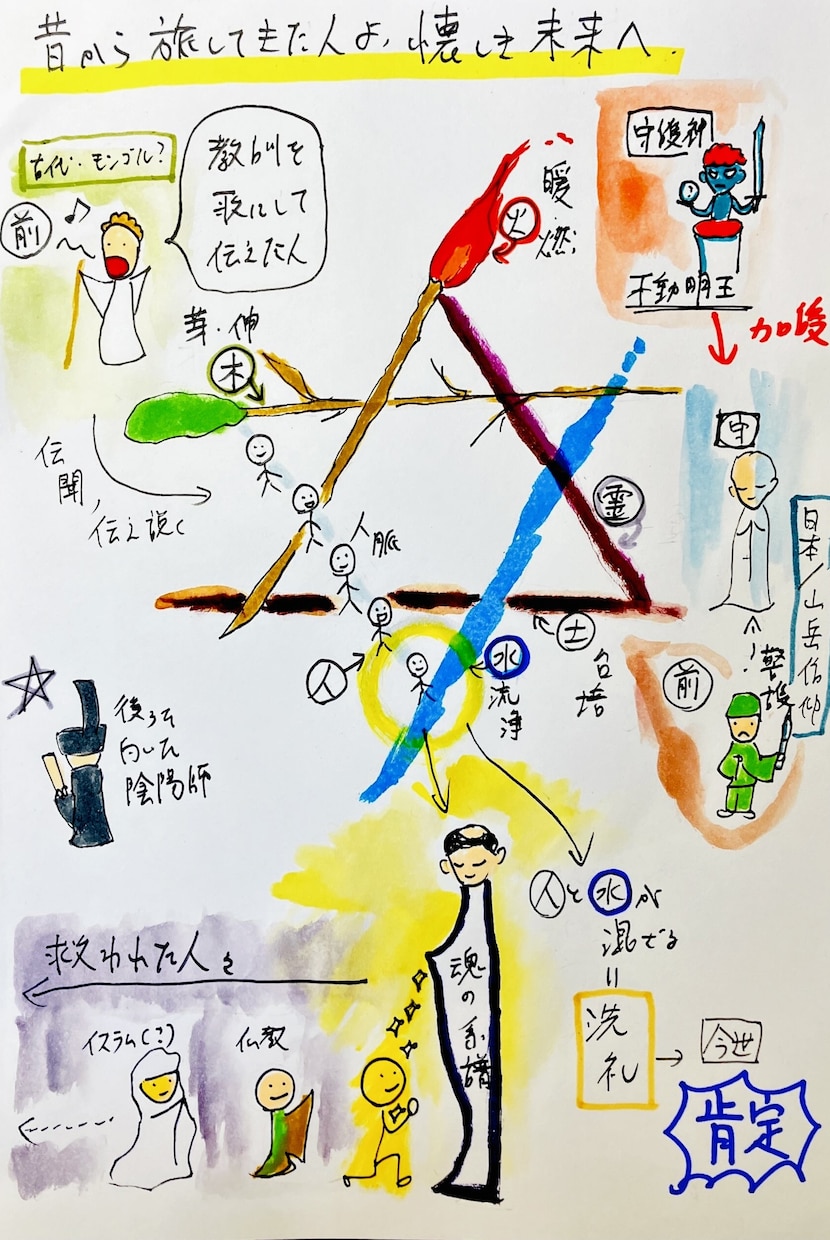 昔から旅してきた人よ、懐しき未来へ.
古代・モンゴル?
前
教訓を
歌にして
伝えた人
火
暖
燃
守護神
不動明王
加護
芽・伸
木
伝
聞、
伝え説く
人脈
霊
守
日本/山岳信仰
土
台
培
人
水
流
浄
前
警護
後ろを
向いた
陰陽師
人と水が
混ぜる
=
洗礼
今世
肯定
魂の系譜
救われた人を
イスラム(?)
仏教